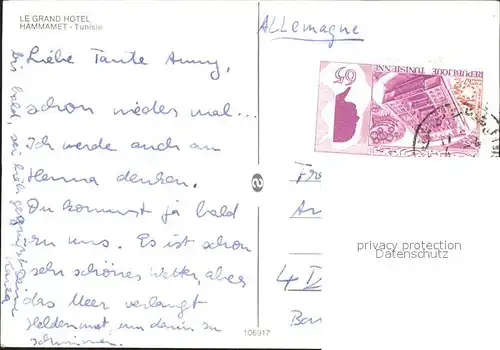 LE GRAND HOTEL
HAMMAMET - Tunisie
ALLEMAGNE
Liebe Tante Anny,
schon wieder mal...
Ich werde auch an
Henna denken.
Du kommst ja bald
zu uns. Es ist schon
sehr schönes Wetter, aber
das Meer verlangt
Heldenmut, um darin zu
schwimmen.
bis bald, sei
Deine
Karen
REPUBLIQUE TUNISIENNE
65
Fr
An
4
106917
privacy protection
Datenschutz